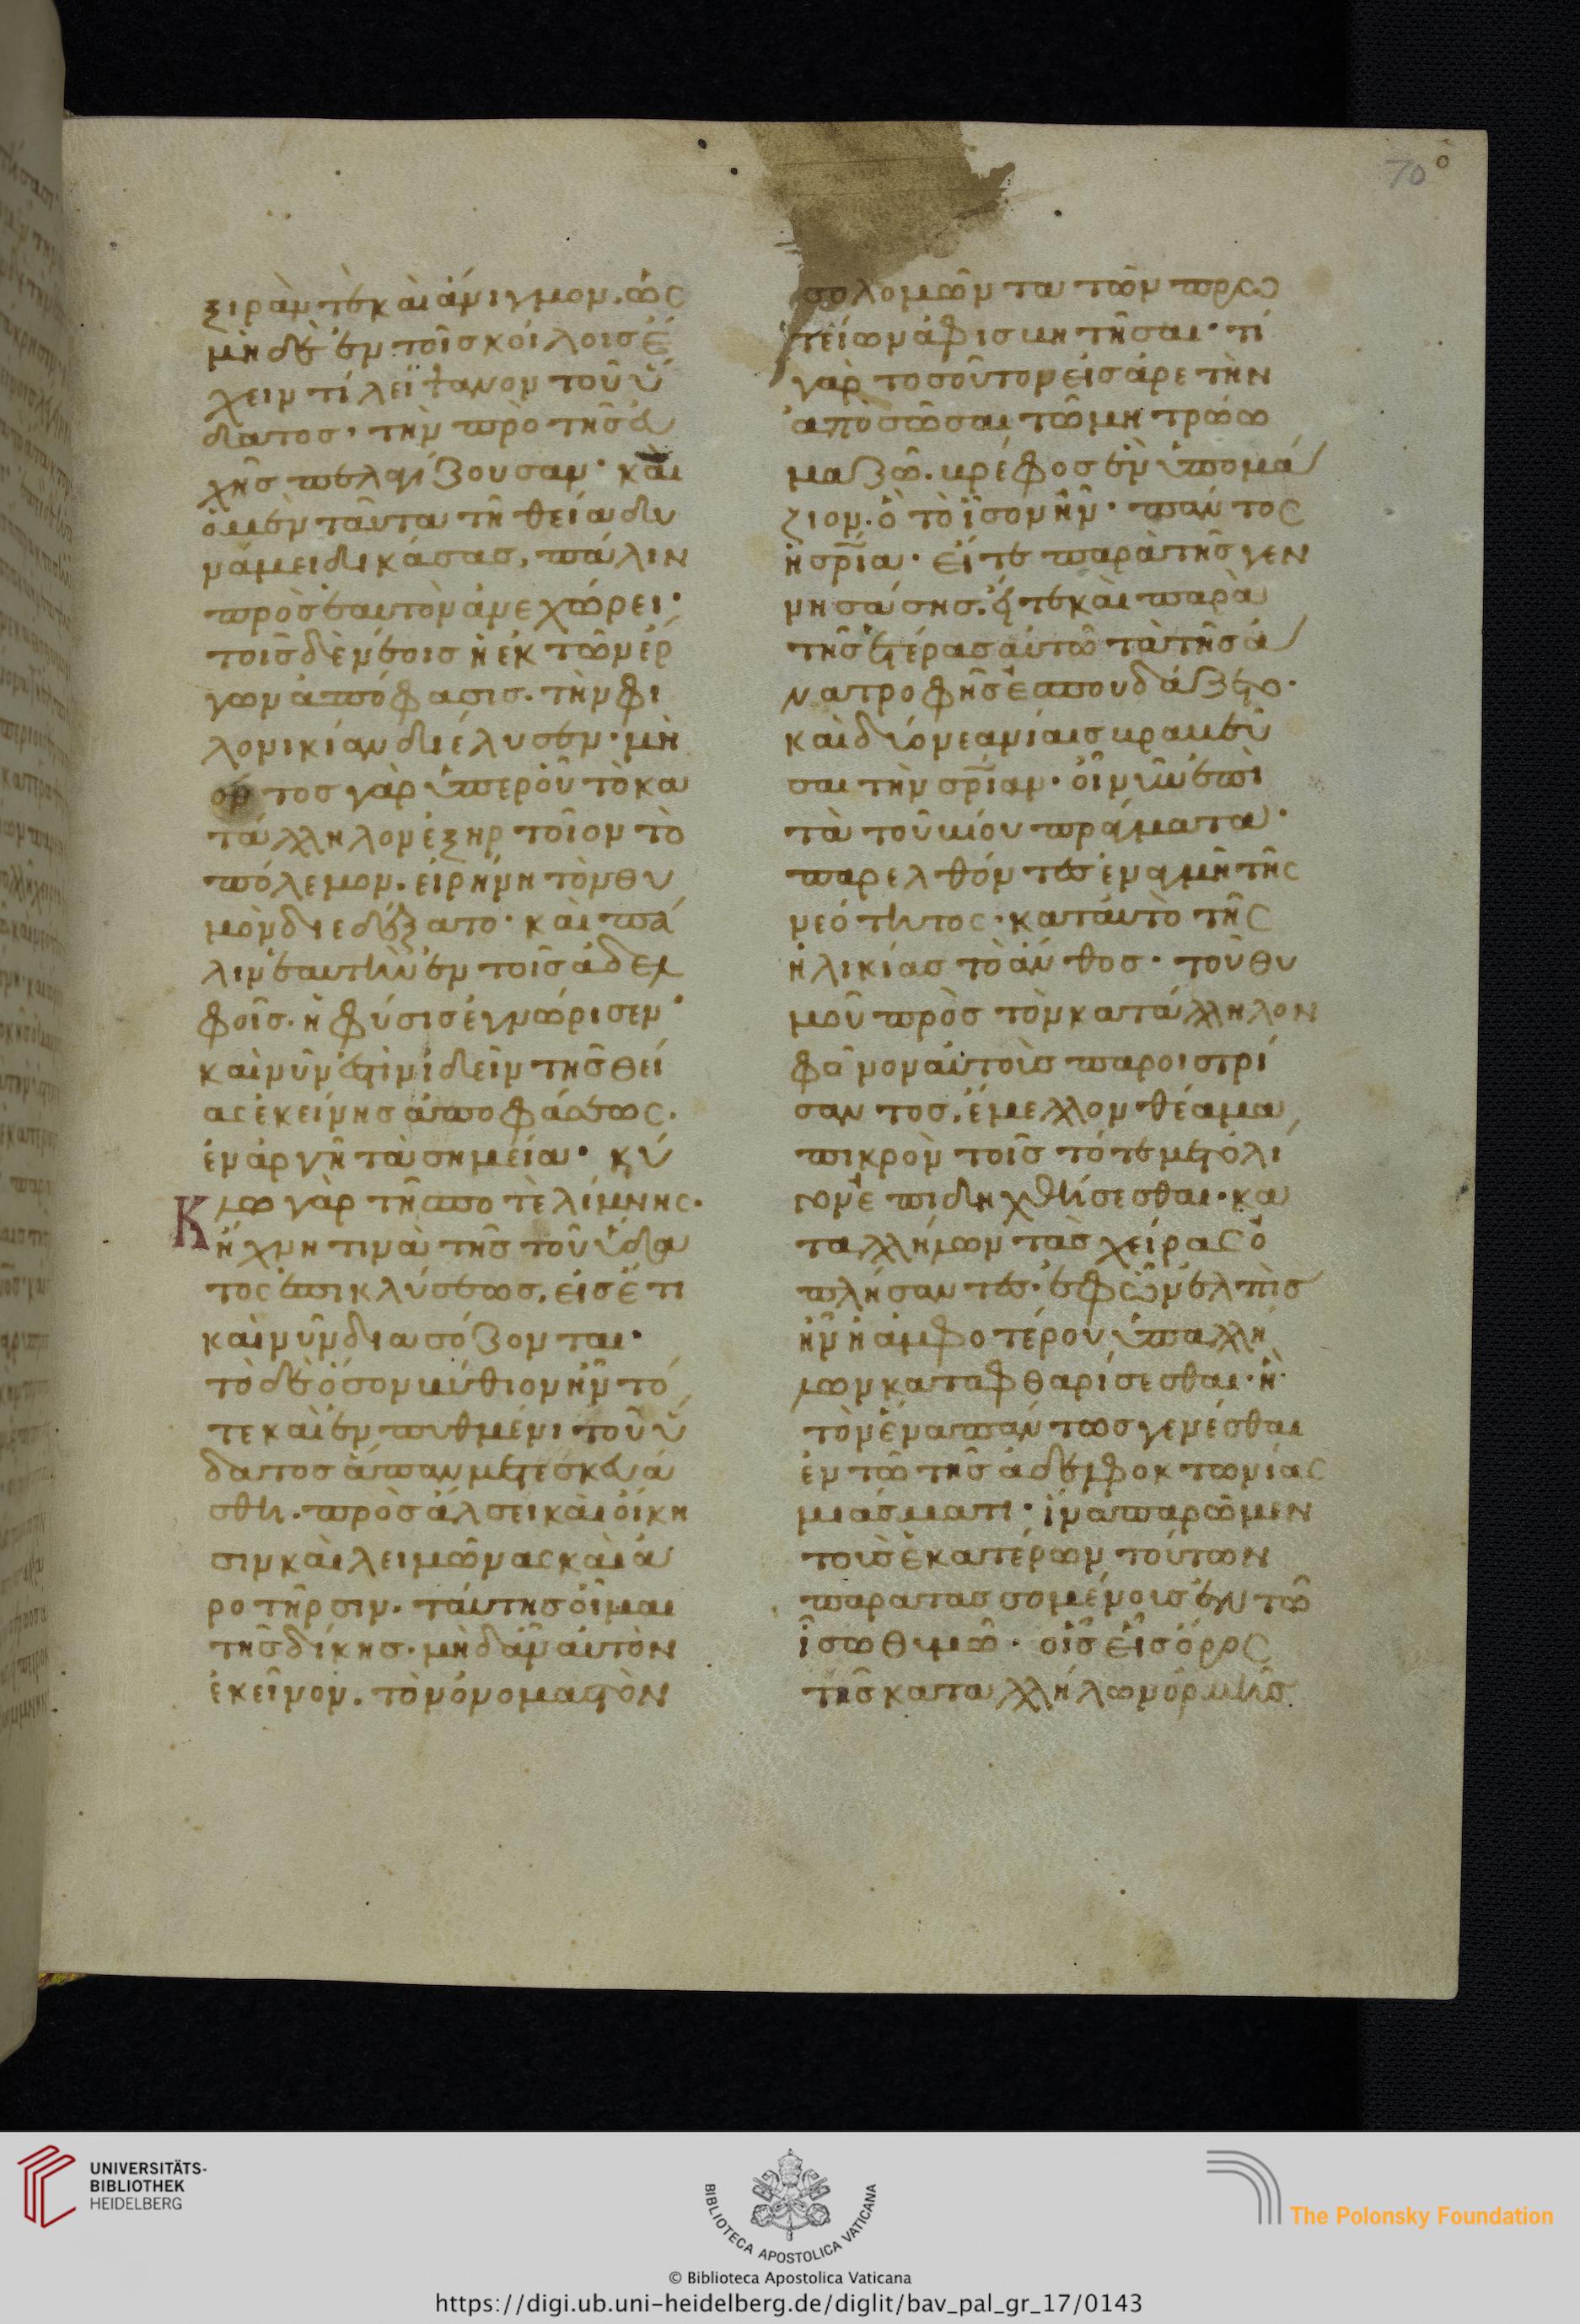 ξιρὰν τὲ καὶ ἀνιγμον. ὡς
μὴ δὲ ἐν τοῖσ κοίλοισ ἔ
χειν τί λεΐψανον τοῦ ὕ
δατοσ, τὴν πρὸ τῆσ εὐ
χῆσ πελαγίζουσαν· καὶ
ὁ μὲν ταῦτα τῆ θεία δυ
νάμει δικάσασ, πάλιν
πρὸσ ἑαυτὸν ἀνεχώρει·
τοῖσ δὲ νέοισ ἡ ἐκ τῶν ἔρ
γων ἀπόφασισ. τὴν φι
λονικίαν διέλυσεν· μὴ
ὄντοσ γὰρ ὑπεροῦ τὸ κα
τάλληλον ἐξηρτοῖον τὸ
πόλεμον. εἰρήνη τὸν θυ
μὸν διεδέξατο· καὶ πά
λιν ἑαυτὴν ἐν τοῖσ ἀδελ
φοῖσ. ἡ φύσισ ἐγνώρισεν·
καὶ νῦν ἐστὶν ἰδεῖν τῆσ θεί
ας ἐκείνησ ἀποφάσεως.
ἐναργῆ τὰ σημεία· κύ
Κλω γὰρ τῆ ποτὲ λίμνης.
ἤχνη τινὰ τῆσ τοῦ ὕδα
τος ἐπικλύσεωσ. εἰσέτι
καὶ νῦν διασόζονται·
τὸ δὲ ὅσον βύθιον ἦν τό
τε καὶ ἐν πυθμένι τοῦ ὕ
δατοσ ἅπαν μετεσκευά
σθη. πρὸσ ἄλσει καὶ οἴκη
σιν καὶ λειμῶνας καὶ ἀ
ροτῆρσιν. ταύτησ οἶμαι
τῆσ δίκησ. μὴ δἂν αὐτὸν
ἐκεῖνον. τὸν ὀνομαστὸν
σολομῶντα τῶν πρω
τείων ἀμφισβητῆσαι· τί
γὰρ τοσοῦτον εἰς ἀρετὴν
ἀποσῶσαι τῶ μητρώω
μαζῶ. βρέφοσ ἓν ὑπομά
ζιον. ὃ τὸ ἴσον ἦν· παντὸς
ἡ σρ̅ία· εἴτε παρὰ τῆσ γεν
νησάσησ. εἴτε καὶ παρὰ
τῆσ ἑτέρασ αὐτῶ τὰ τῆσ ἀ
νατροφῆσ ἐσπουδάζετο·
καὶ δύο νεανίαισ βραβεῦ
σαι τὴν σρ̅ίαν· οἳ νῦν ἐπὶ
τὰ τοῦ βίου πράγματα·
παρελθόντεσ ἐν ἀκμῆ τῆς
νεότητος· κατ αὐτὸ τῆς
ἡλικίασ τὸ ἄνθοσ· τοῦ θυ
μοῦ πρὸσ τὸν κατάλληλον
φόνον αὐτοὺσ παροιστρή
σαντοσ, ἔμελλον θέαμα
πικρὸν τοῖσ τότε μετ ὀλί
γον ἐπιδηχθήσεσθαι· κα
ταλλήλων τὰσ χεῖρας ὁ
πλήσαντεσ· ἐφ ὧν ἐλπὶσ
ἦν ἢ ἀμφοτέρου ὑπαλλή
λων καταφθαρίσεσθαι· ἢ
τὸν ἕνα πάντωσ γενέσθαι
ἐν τῶ τῆσ ἀδελφοκτωνίας
μιάσματι· ἵνα παρῶμεν
τοὺσ ἑκατέρων τούτων
παρατασσομένουσ ἐν τῶ
ἴσω θυμῶ· οἷσ εἷσ ὅρος
τῆσ καταλλήλων ὁρμῆσ
70
UNIVERSITÄTS-
BIBLIOTHEK
HEIDELBERG
BIBLIOTECA APOSTOLICA VATICANA
The Polonsky Foundation
© Biblioteca Apostolica Vaticana
https://digi.ub.uni-heidelberg.de/diglit/bav_pal_gr_17/0143